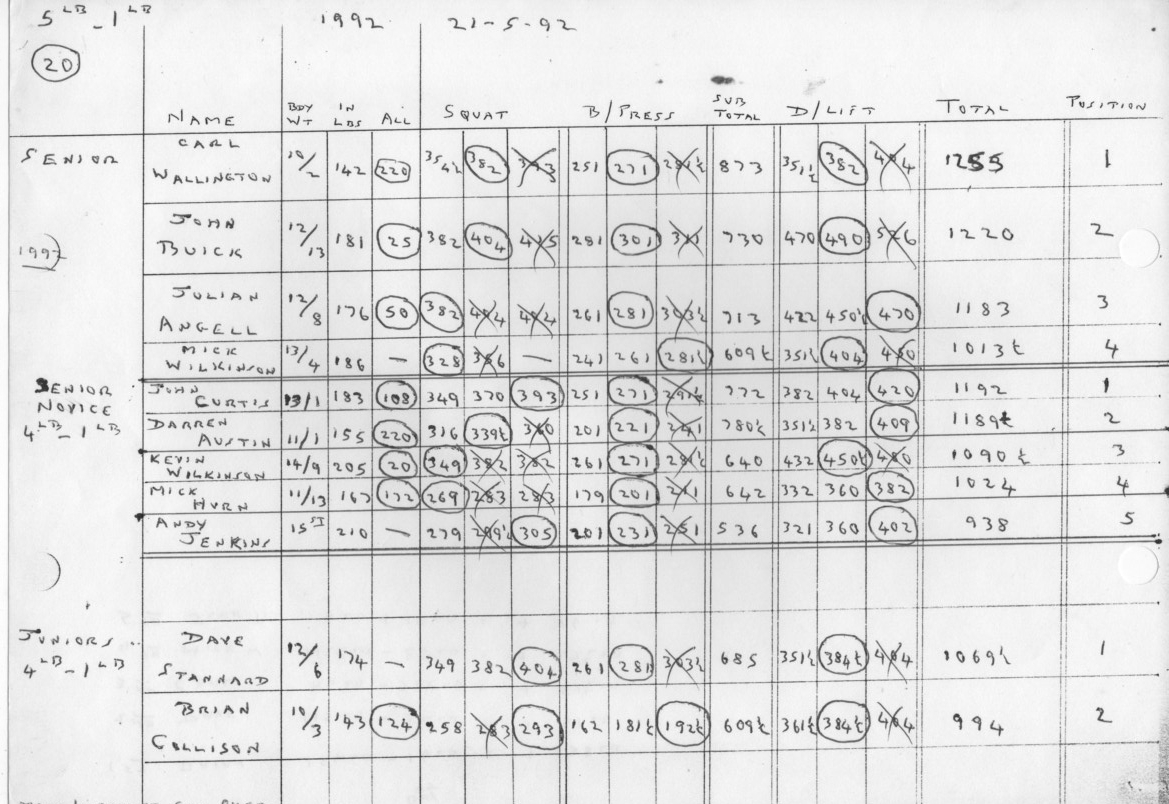 5 LB - 1 LB 1992 21-5-92
20
NAME BDY WT IN LBS ALL SQUAT B/PRESS SUB TOTAL D/LIFT TOTAL POSITION
SENIOR CARL WALLINGTON 10/2 142 220 354½ 382 393 251 271 281½ 873 351½ 382 404 1255 1
1992 JOHN BUICK 12/13 181 25 382 404 415 281 301 311 730 470 490 526 1220 2
JULIAN ANGELL 12/8 176 50 382 404 404 261 281 303½ 713 422 450½ 470 1183 3
MICK WILKINSON 13/4 186 — 328 356 — 241 261 281½ 609½ 351½ 404 450 1013½ 4
SENIOR NOVICE 4 LB - 1 LB JOHN CURTIS 13/1 183 108 349 370 393 251 271 291½ 772 382 404 420 1192 1
DARREN AUSTIN 11/1 155 220 316 339½ 360 201 221 241 780½ 351½ 382 409 1189½ 2
KEVIN WILKINSON 14/9 205 20 349 382 382 261 271 281½ 640 432 450½ 480 1090½ 3
MICK HURN 11/13 167 172 269 283 283 179 201 211 642 332 360 382 1024 4
ANDY JENKINS 15 ST 210 — 279 299½ 305 201 231 251 536 321 360 402 938 5
JUNIORS 4 LB - 1 LB DAVE STANNARD 12/6 174 — 349 382 404 261 281 303½ 685 351½ 384½ 404 1069½ 1
BRIAN COLLISON 10/3 143 124 258 283 293 162 181½ 192½ 609½ 361½ 384½ 404 994 2